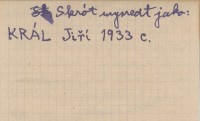 Skrót wyszedł jako:
KRÁL Jiří 1933 c.